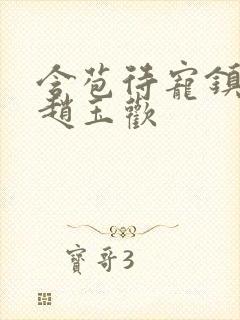 含苞待寵鎮
趙玉歡
寶哥3